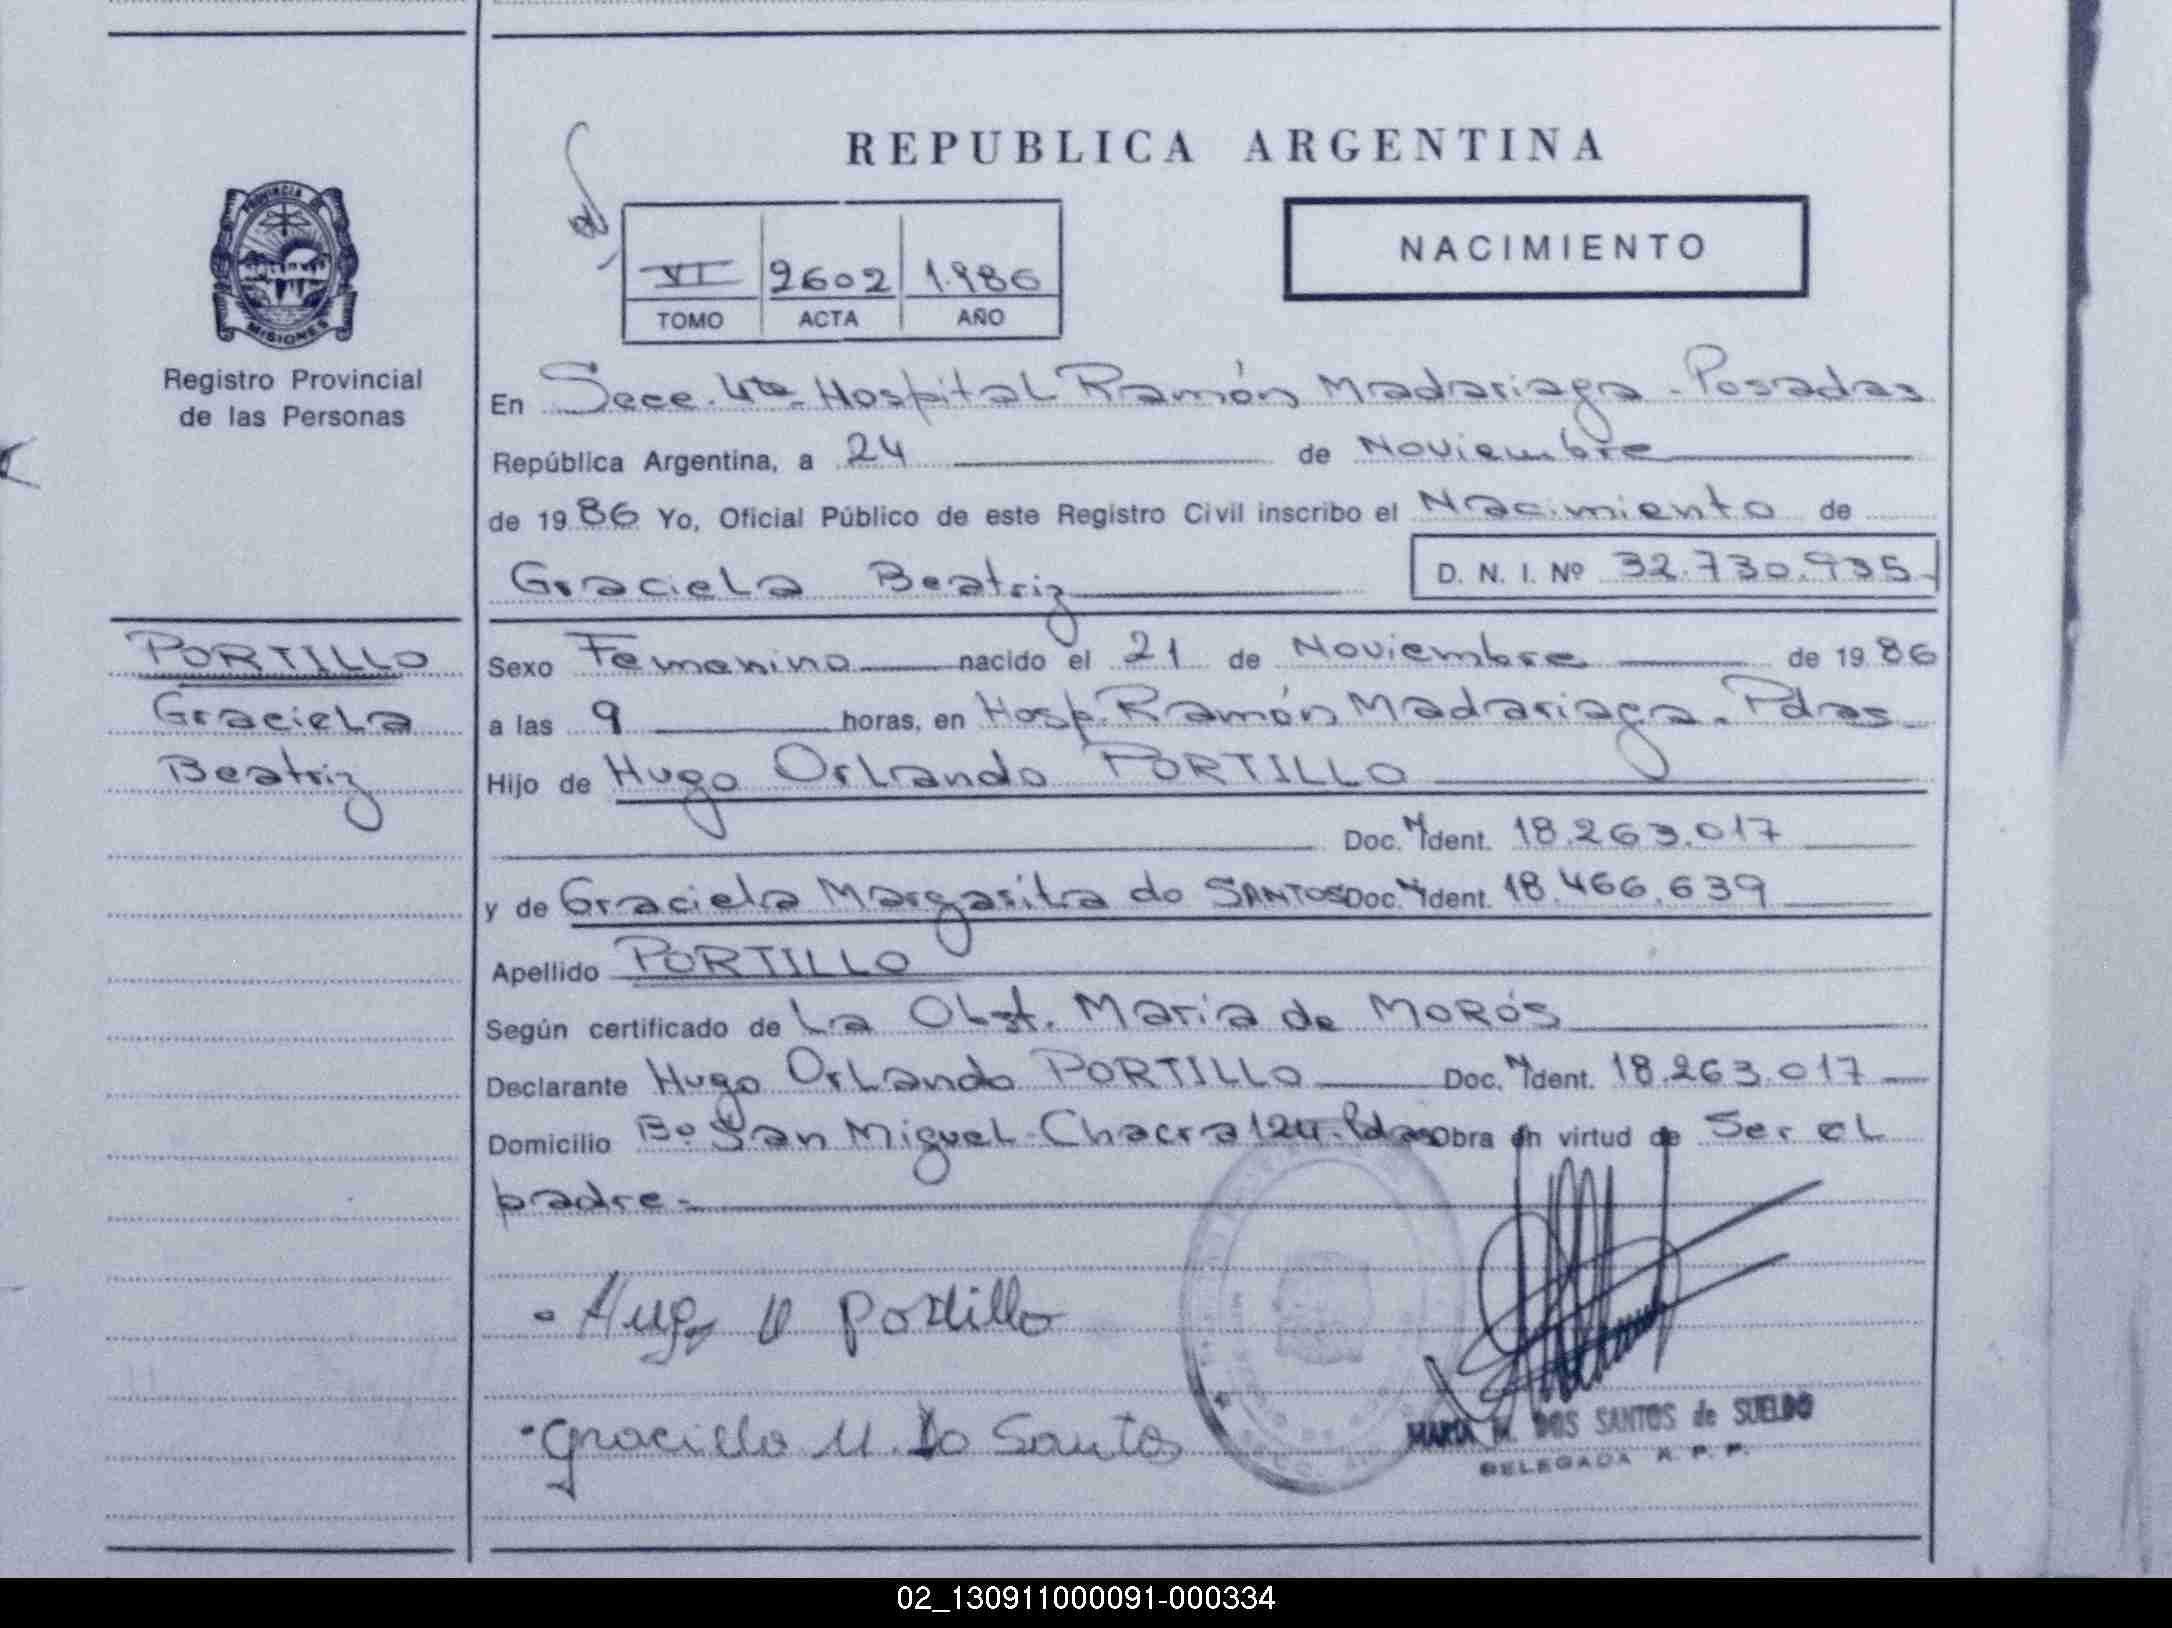 REPUBLICA ARGENTINA
PROVINCIA DE
MISIONES
Registro Provincial
de las Personas
VI 2602 1.986
TOMO ACTA AÑO
NACIMIENTO
En Secc. 4ta. Hospital Ramón Madariaga - Posadas
República Argentina, a 24 de Noviembre
de 1986 Yo, Oficial Público de este Registro Civil inscribo el Nacimiento de
Graciela Beatriz
D. N. I. Nº 32.730.935.
PORTILLO
Graciela
Beatriz
Sexo Femenino nacido el 21 de Noviembre de 1986
a las 9 horas, en Hosp. Ramón Madariaga. Pdas.
Hijo de Hugo Orlando PORTILLO
Doc. Ident. 18.263.017
y de Graciela Margarita do SANTOS Doc. Ident. 18.466.639
Apellido PORTILLO
Según certificado de La Obst. Maria de MORÓS
Declarante Hugo Orlando PORTILLO Doc. Ident. 18.263.017
Domicilio Bº San Miguel - Chacra 124. Pdas Obra en virtud de Ser el
padre.-
Hugo O Portillo
Graciela M. Do Santos
MARIA M. DOS SANTOS de SUELDO
DELEGADA R. P. P.
02_130911000091-000334